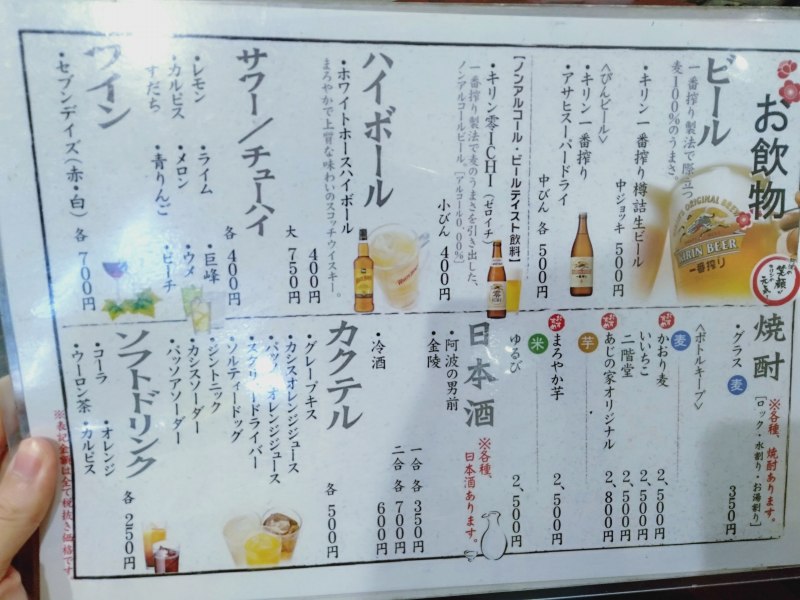 お飲物
ビール
一番搾り製法で際立つ
麦100%のうまさ。
・キリン一番搾り樽詰生ビール
中ジョッキ 500円
<びんビール>
・キリン一番搾り
・アサヒスーパードライ
中びん 各 500円
[ノンアルコール・ビールテイスト飲料]
・キリン零ICHI(ゼロイチ)
一番搾り製法で麦のうまさを引き出した、
ノンアルコールビール。[アルコール0.00%]
小びん 400円
ハイボール
・ホワイトホースハイボール
まろやかで上質な味わいのスコッチウイスキー。
400円
大 750円
サワー/チューハイ
・レモン ・ライム ・巨峰
・カルピス ・メロン ・ウメ
・すだち ・青りんご ・ピーチ
各 400円
ワイン
・セブンデイズ(赤・白) 各 700円
KIRIN BEER
一番搾り
焼酎
※各種、焼酎あります。
[ロック・水割り・お湯割り]
・グラス 麦 350円
<ボトルキープ>
麦
かおり麦 2,500円
いいちこ 2,500円
二階堂 2,500円
おすすめ あじの家オリジナル 2,800円
芋
おすすめ まろやか芋 2,500円
米
ゆるび 2,500円
日本酒
※各種、
日本酒あります。
・阿波の男前
・金陵
一合 各 350円
二合 各 700円
・冷酒 600円
カクテル
・グレープキス
・カシスオレンジジュース
・パッソオレンジジュース
・スクリュードライバー
・ソルティードッグ
・ジントニック
・カシスソーダー
・パッソアソーダー
各 500円
ソフトドリンク
・コーラ ・オレンジ
・ウーロン茶 ・カルピス
各 250円
※表記金額は全て税抜き価格です